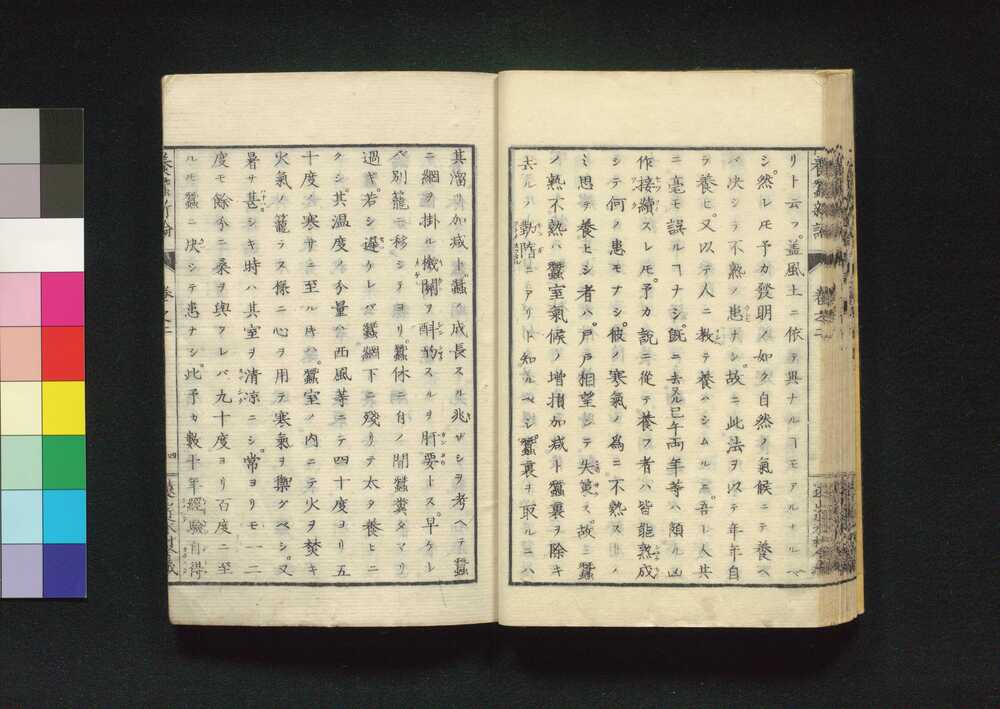 リト云フ。盖風土ニ依テ異ナルヿモアルナルベ
シ。然レ𪜈予カ發明ノ如ク自然ノ氣候ニテ養ヘ
バ决シテ不熟ノ患ナシ。故ニ此法ヲ以テ年年自
ラ養ヒ。又以テ人ニ教テ養ハシムルニ。吾ト人共
ニ毫モ誤ルヿナシ。既ニ去ル巳午両年等ハ頗ル凶
作接續スレ𪜈。予カ説ニ從テ養フ者ハ皆能熟成
シテ何ノ患モナシ。彼ノ寒氣ノ為ニ不熟ス
ミ思テ養ヒシ者ハ。戸戸相望ンデ失
ノ熟不熟ハ蠶室氣候ノ増損加减ト蠶裏ヲ除キ
去ルノ勤惰ニアリト知ルベシ。蠶裏ヲ取ルニハ
養蠶新論
卷之二
其溜リ加减ト。蠶ノ成長スル兆ザシヲ考ヘテ。蠶
ニ網ヲ掛ル機關ヲ酙酌スルヲ肝要トス。早ケレ
バ別籠ニ移シテヨリ。蠶休ニ自ノ間蠶糞タマリ
過ギ。若シ遅ケレバ蠶網下ニ殘リテ太タ養ヒニ
クシ。其温度ノ分量ハ。西風等ニテ四十度ヨリ五
十度ノ寒サニ至ル𪜈ハ。蠶室ノ内ニテ火ヲ焚キ
火氣ノ籠ラヌ様ニ心ヲ用テ寒氣ヲ禦グベシ。又
暑サ甚シキ時ハ其室ヲ清凉ニシ。常ヨリモ一二
度モ餘分ニ桑ヲ與フレバ。九十度ヨリ百度ニ至
ルモ蠶ニ决シテ患ナシ。此予カ數十年經驗自得
卷之二
四